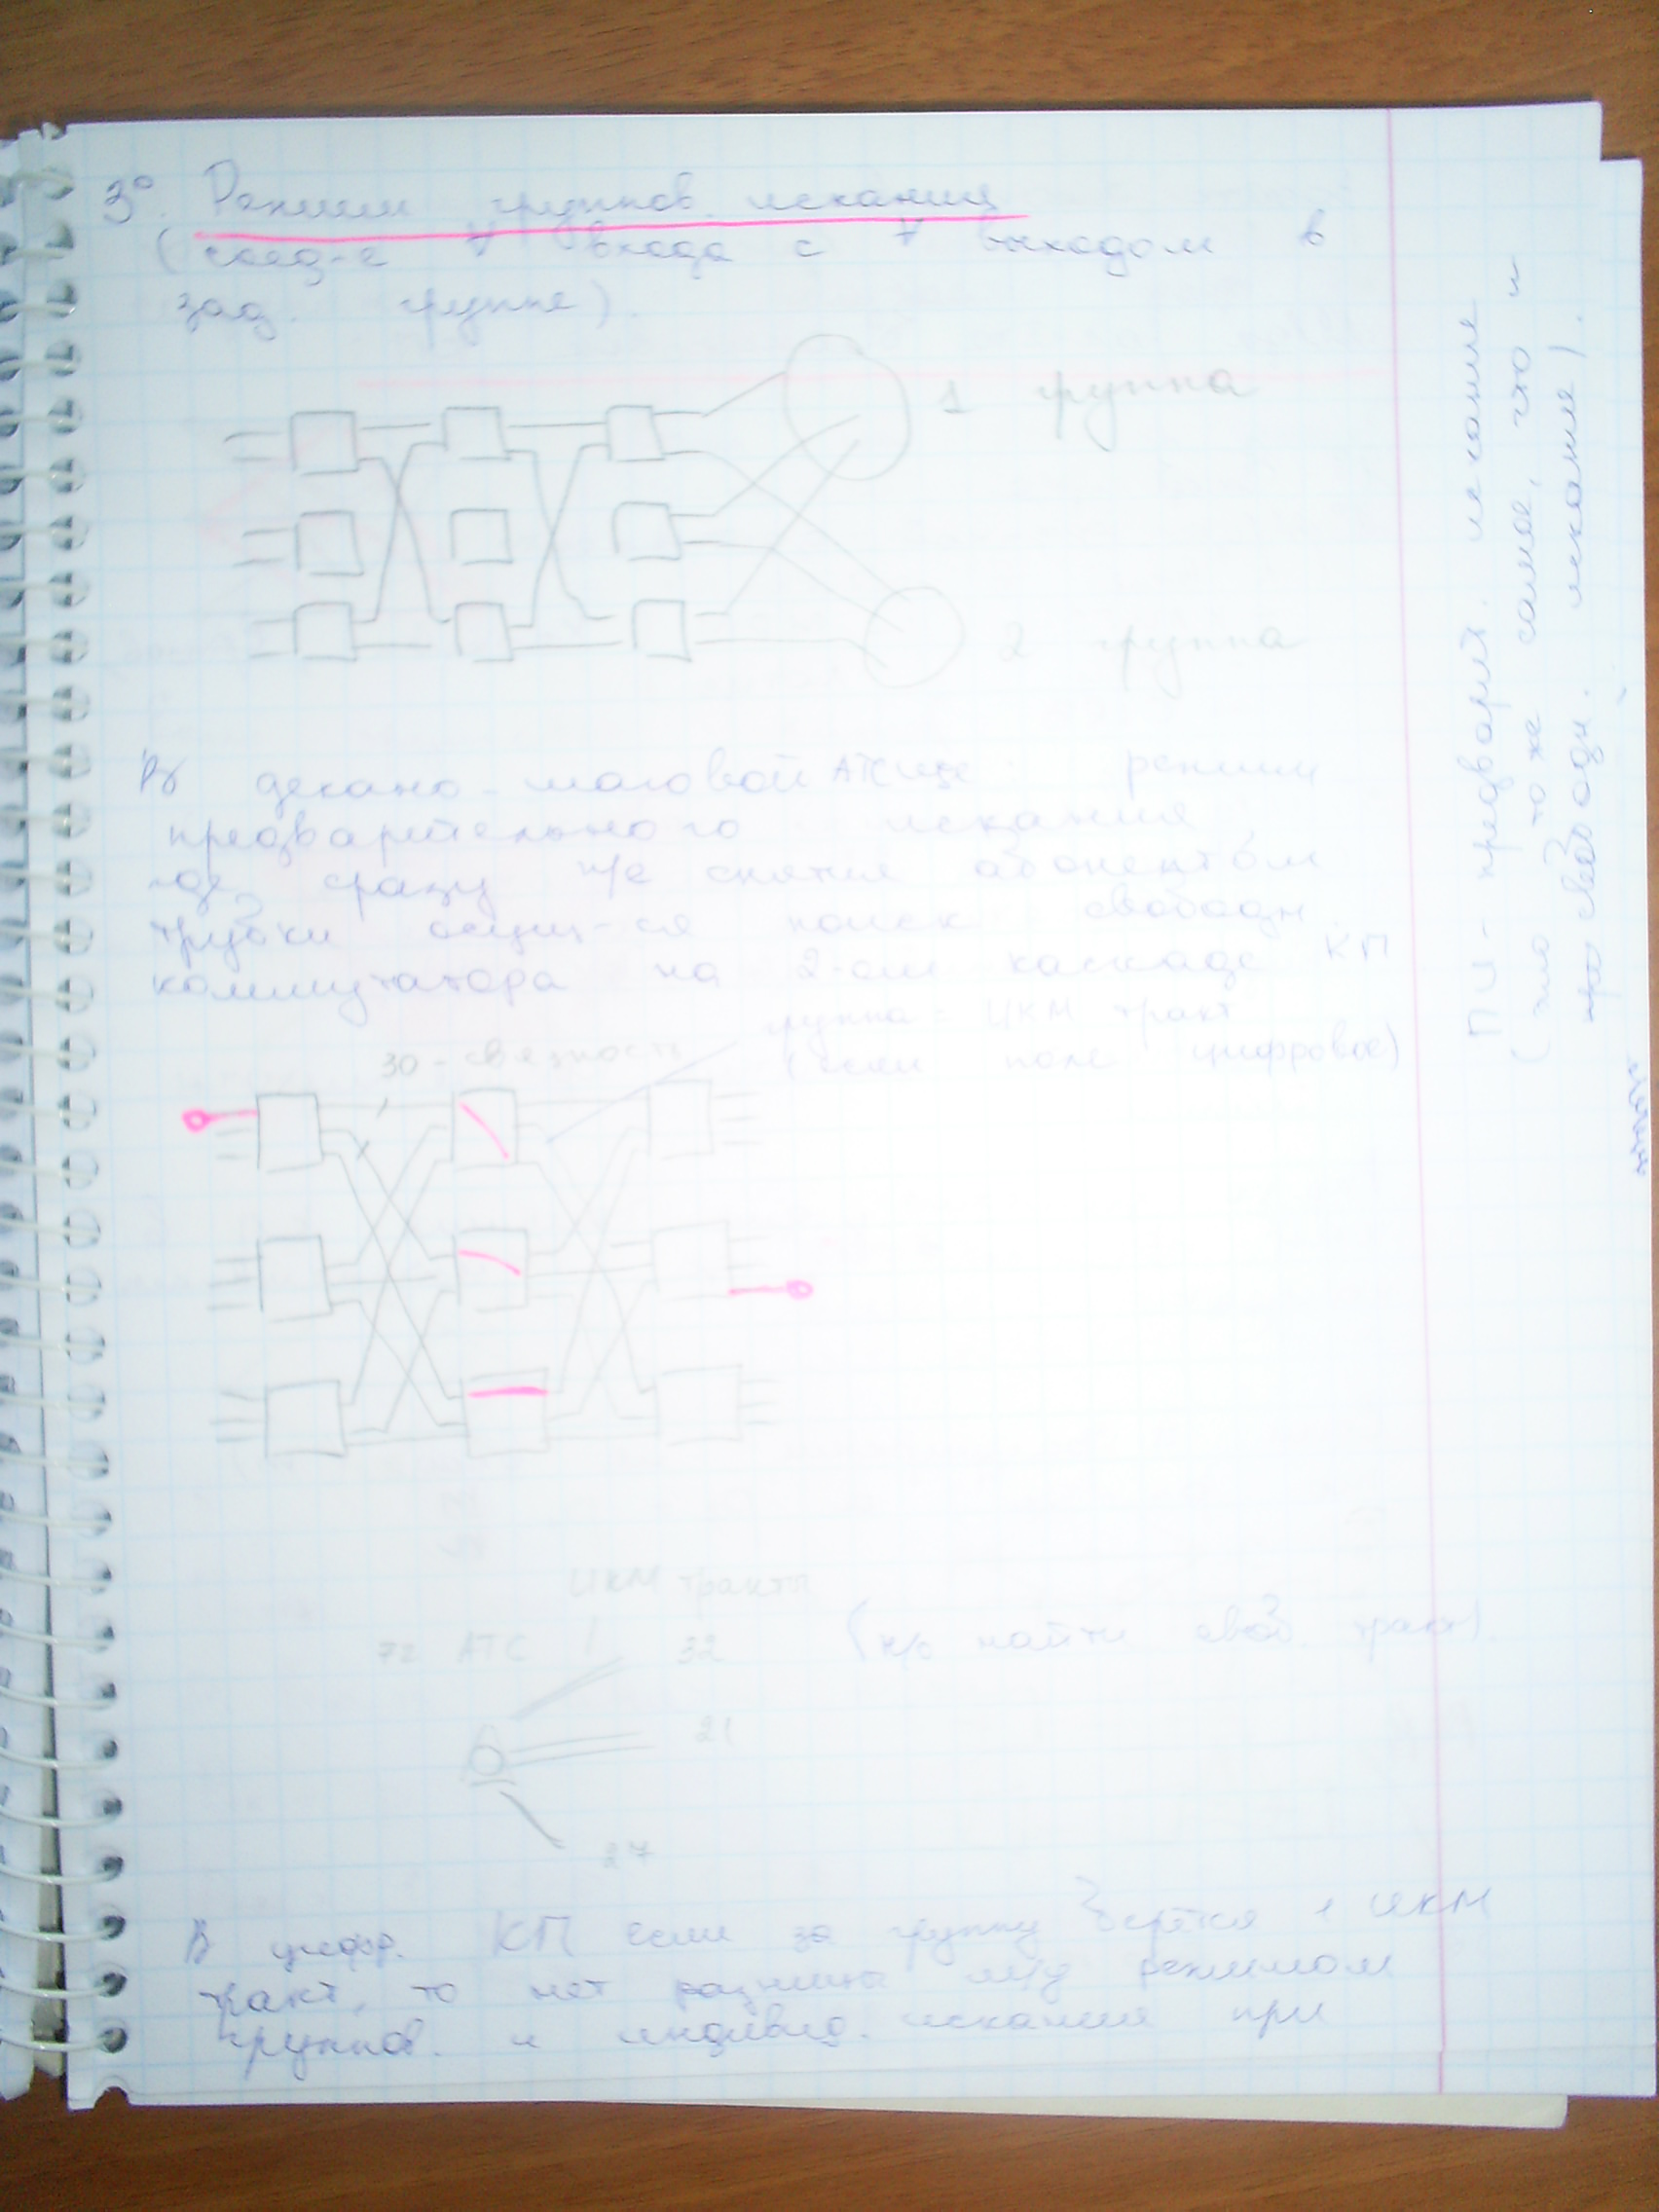 3°. Режим группов. искания
(соед-е ∀ входа с ∀ выходом в
зад. группе).
1 группа
2 группа
В декадно-шаговой АТС еще режим
предварительного искания,
где сразу п/е снятия абонентом
трубки осущ-ся поиск свободн.
коммутатора на 2-ом каскаде КП
группа - ИКМ тракт
(если поле цифровое)
30-связность
ИКМ тракты
72 АТС 32 (н/о найти своб. тракт)
21
27
В цифр. КП если за группу берётся 1 ИКМ
тракт, то нет разницы м/д режимом
группов. и индивид. искания при
ПИ - предварит. искание
(это то же самое, что и
свободн. искание).